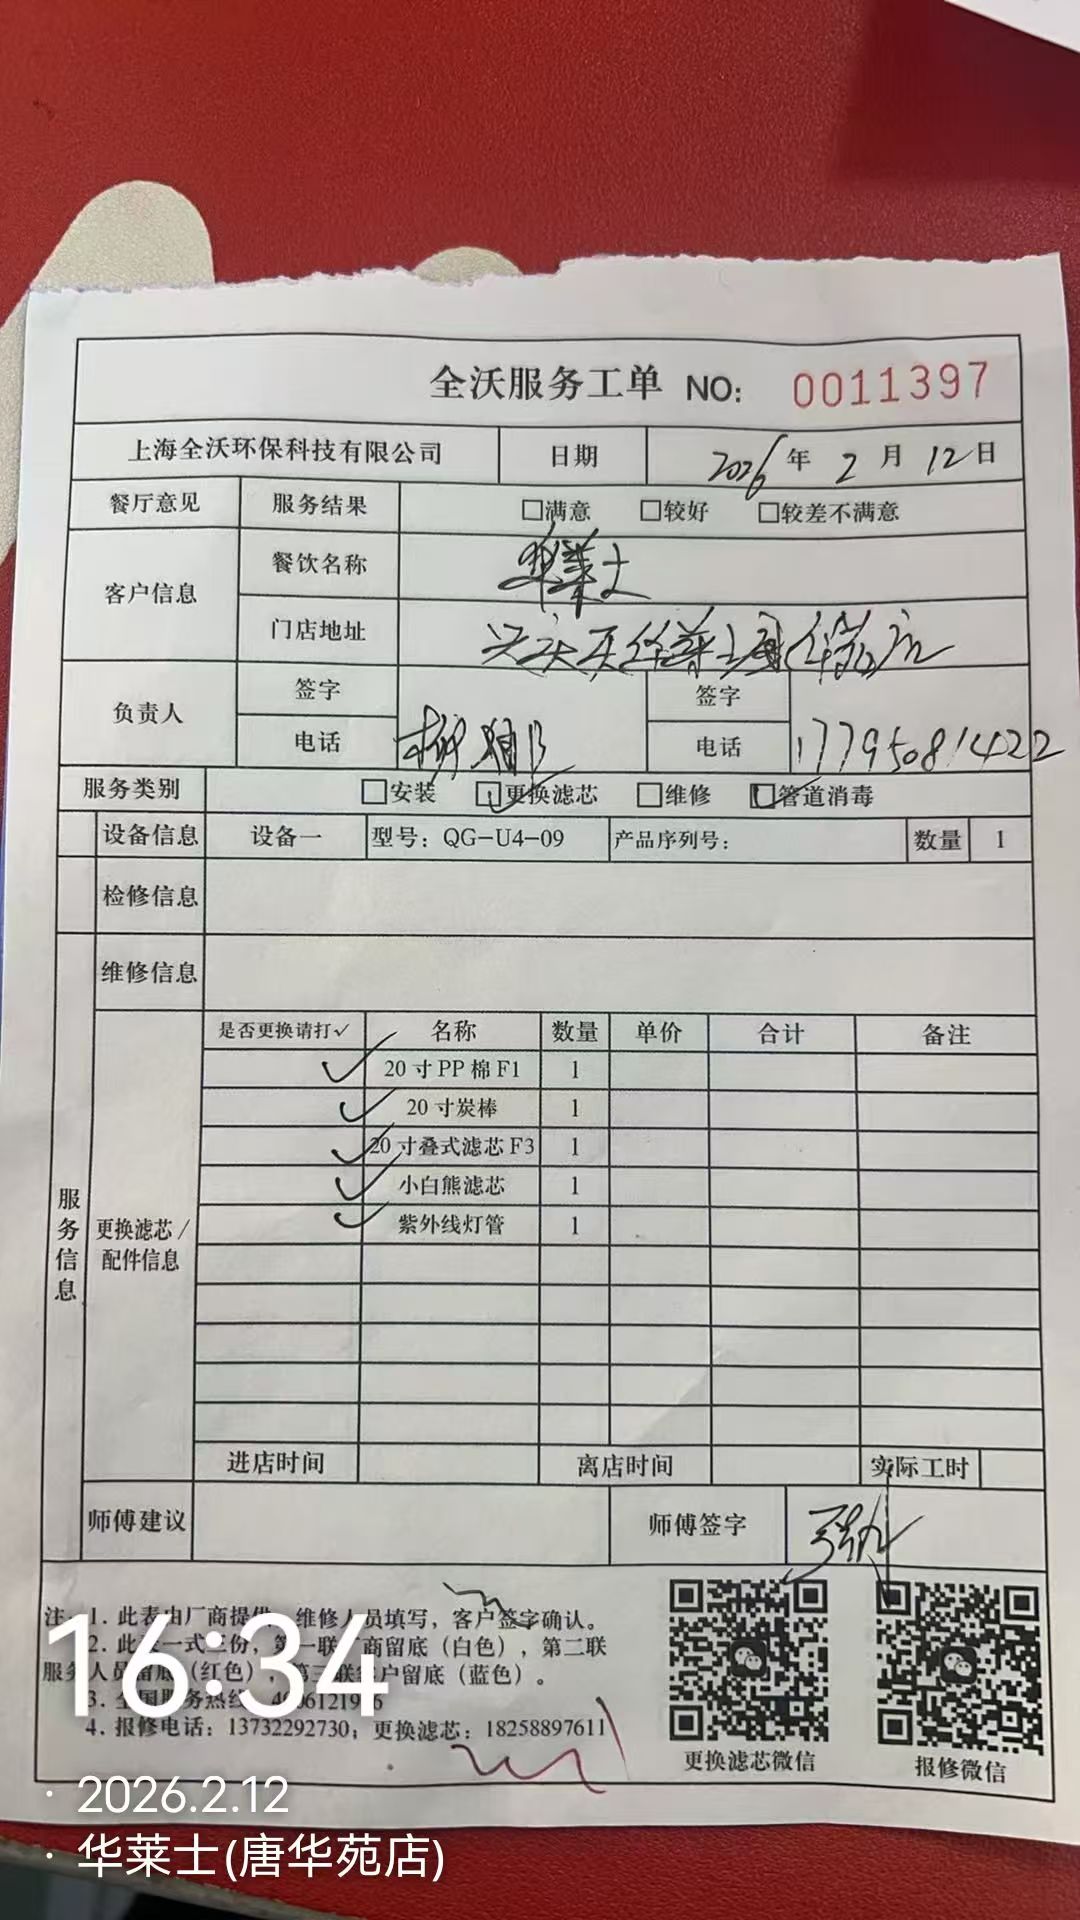 全沃服务工单 NO: 0011397
上海全沃环保科技有限公司 日期 2026年2月12日
餐厅意见 服务结果 □满意 □较好 □较差不满意
客户信息 餐饮名称 华莱士
门店地址 华莱士唐华苑店
负责人 签字 签字
电话 电话 17795081422
服务类别 □安装 □更换滤芯 □维修 □管道消毒
设备信息 设备一 型号：QG-U4-09 产品序列号： 数量 1
检修信息
维修信息
服务信息
更换滤芯/配件信息
是否更换请打✓ 名称 数量 单价 合计 备注
✓ 20寸PP棉F1 1
✓ 20寸炭棒 1
✓ 20寸叠式滤芯F3 1
✓ 小白熊滤芯 1
✓ 紫外线灯管 1
进店时间 离店时间 实际工时
师傅建议 师傅签字
注：1. 此表由厂商提供，维修人员填写，客户签字确认。
2. 此一式三份，第一联厂商留底（白色），第二联
服务人员留底（红色），第三联客户留底（蓝色）。
3. 全国服务热线
4. 报修电话：13732292730；更换滤芯：18258897611
更换滤芯微信 报修微信
16:34
· 2026.2.12
· 华莱士(唐华苑店)